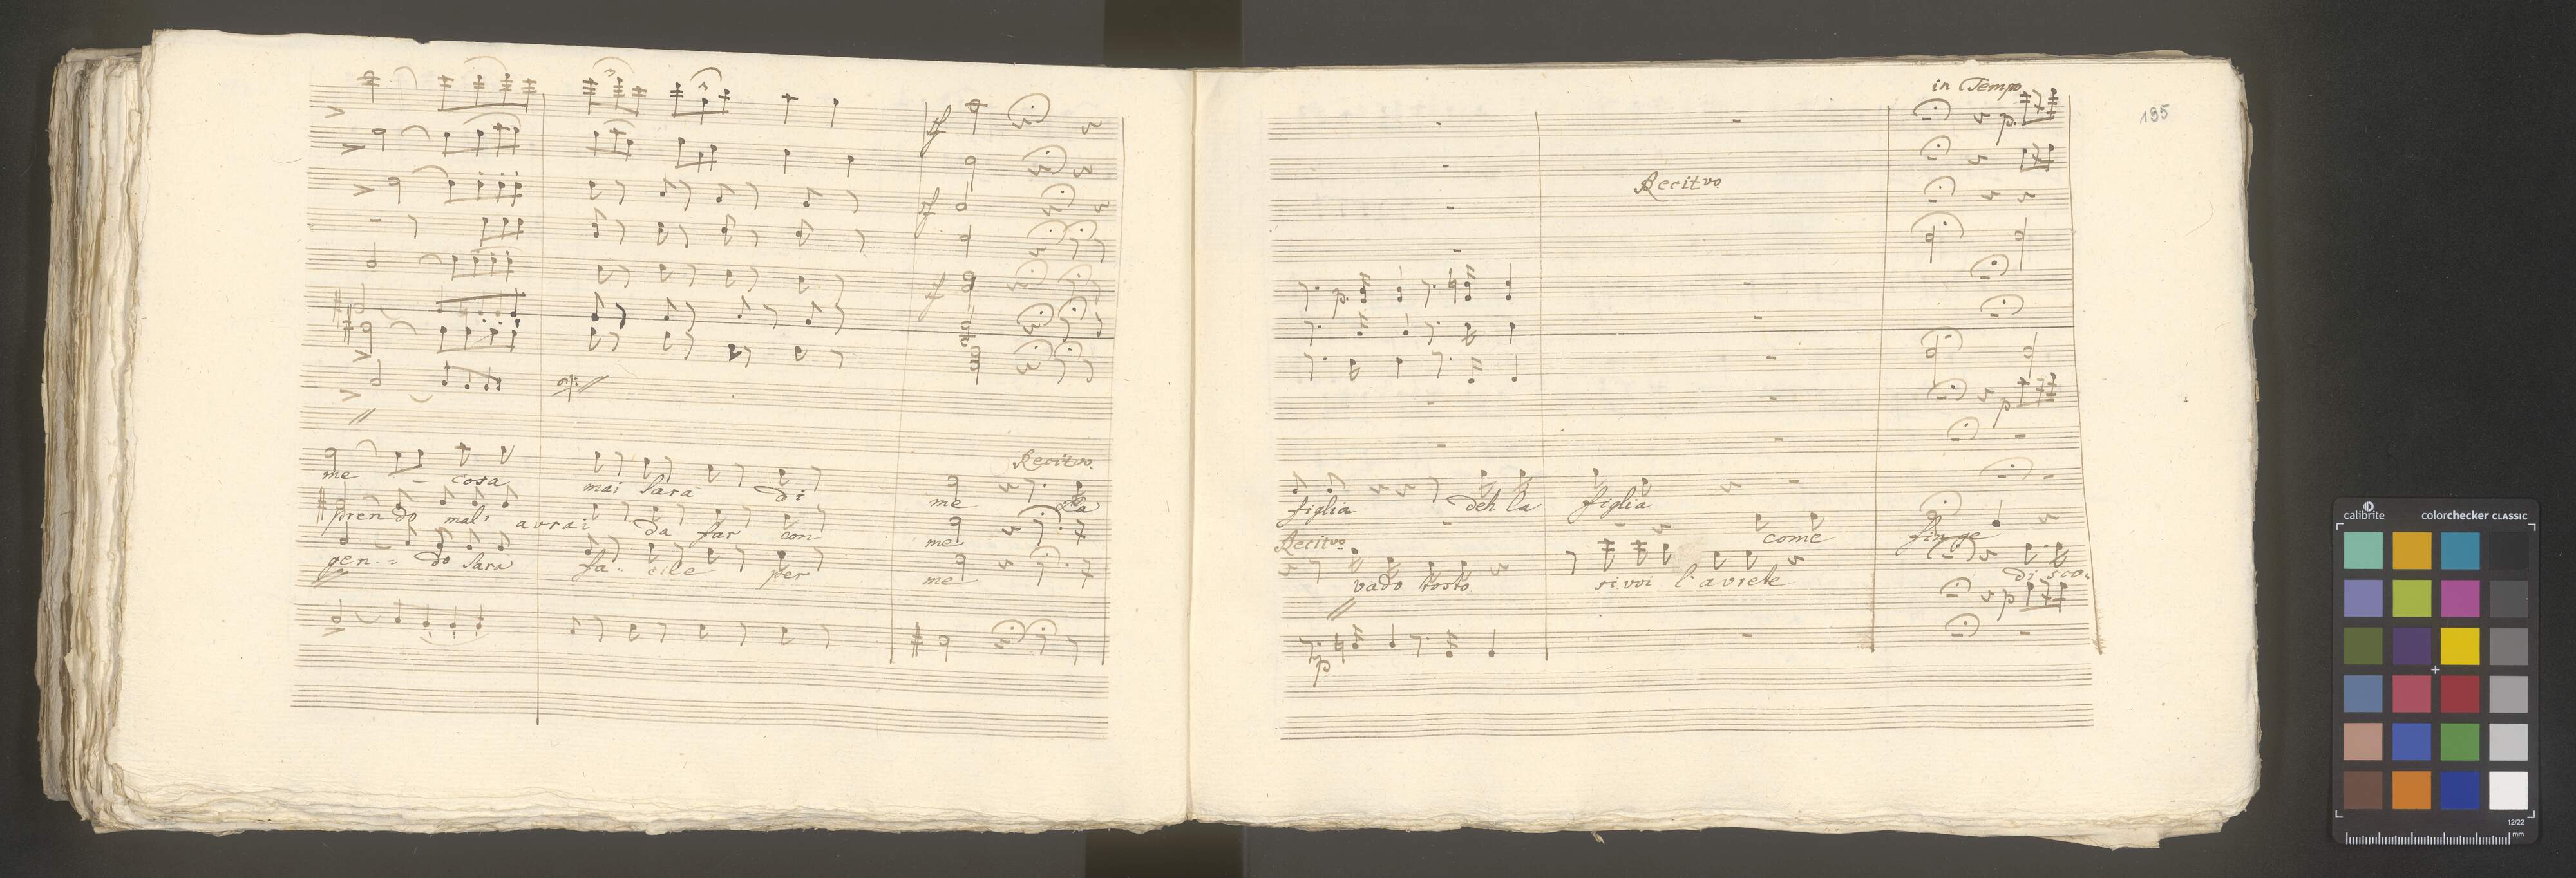 Recitvo.
me - cosa mai sarà di me La
prendo mal' avrai da far con me
gen - do sarà fa - cile per me
in Tempo
195
Recitvo
figlia deh la figlia
come finge
Recitvo
vado tosto si voi l'avrete di sco.
calibrite colorchecker CLASSIC
12/22
mm